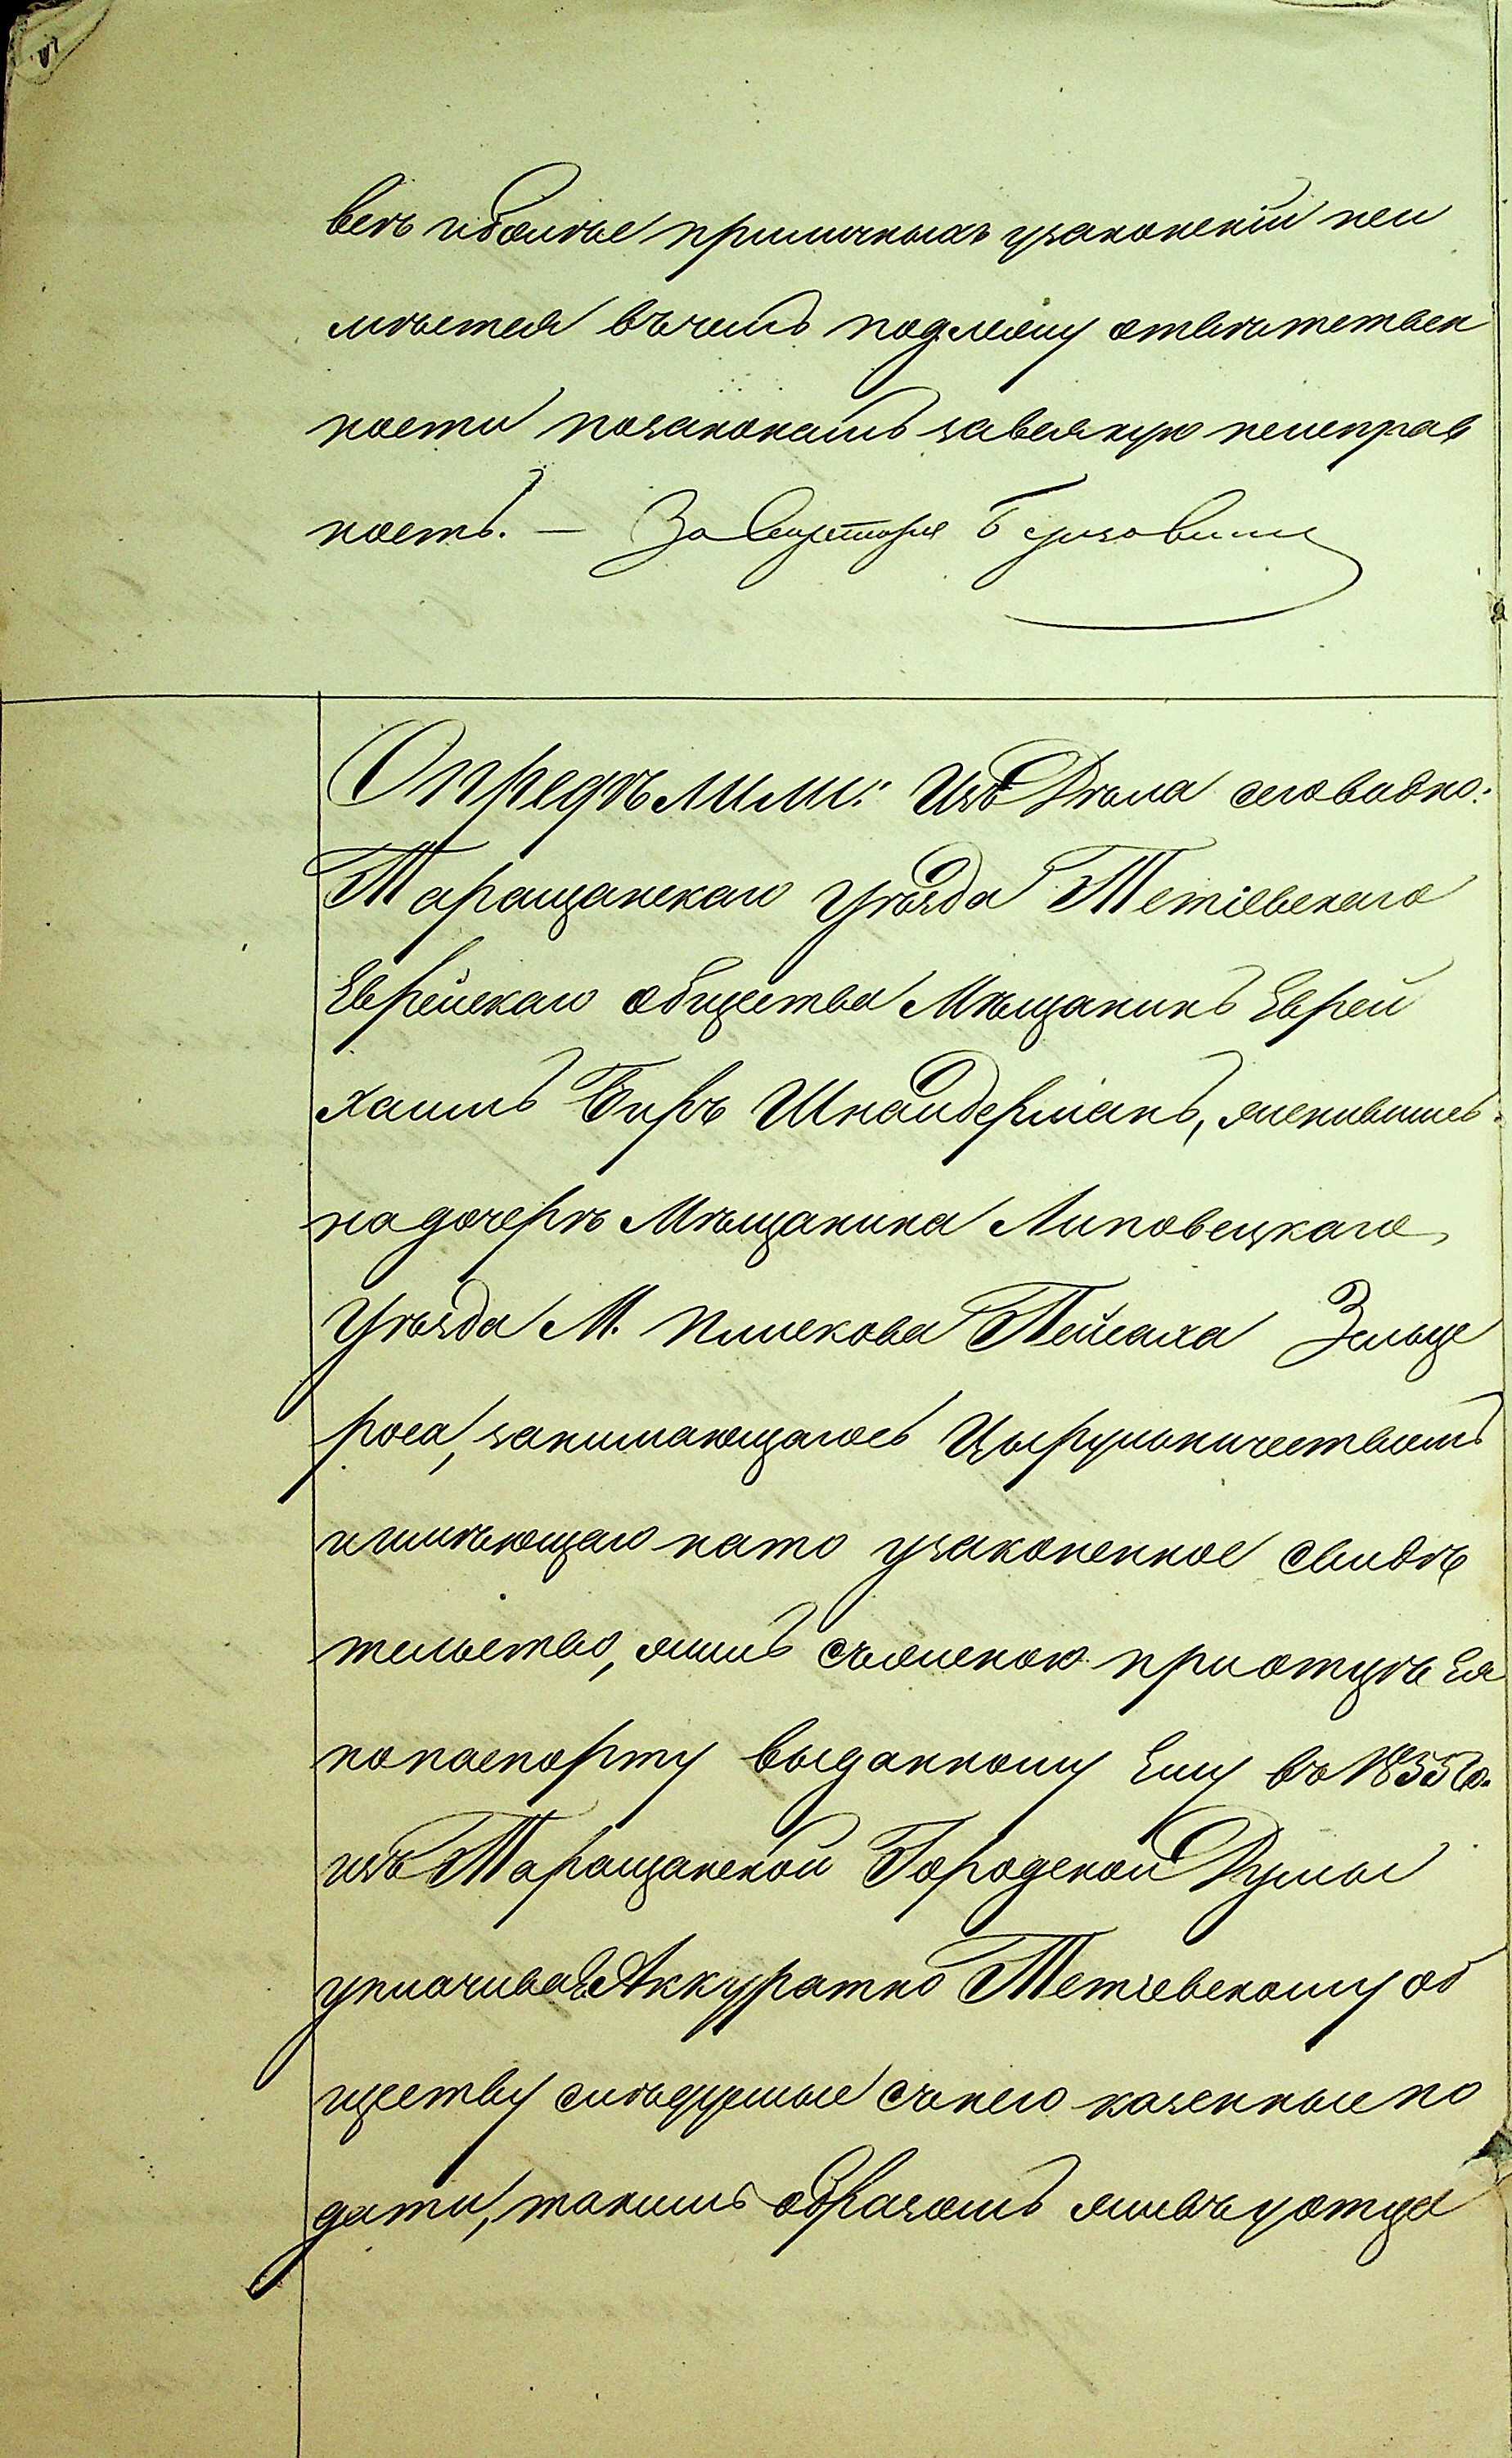 всѣ и болѣе приличныхъ узаконеній неи
мѣется въ чемъ подлежу отвѣтствен
ности по законамъ за всякую неисправ
ность. — За Секретаря
Опредѣлили: Изъ Дѣла сего видно:
Таращанскаго Уѣзда Тетіевскаго
Еврейскаго общества Мѣщанинъ Еврей
Хаимъ Беръ Шнайдерманъ, женившись
на дочерѣ Мѣщанина Липовецкаго
Уѣзда М. Плискова Пейсаха Зельце
роса, занимающагось Цырульничествомъ
и имѣющаго на то узаконенное свидѣ
тельство, жилъ съ женою при отцѣ ея
по паспорту выданному Ему въ 1855 го.
изъ Таращанской Городской Думы
уплачивая Аккуратно Тетіевскому об
ществу слѣдуемые съ него казенные по
дати, такимъ образомъ живъ у отца